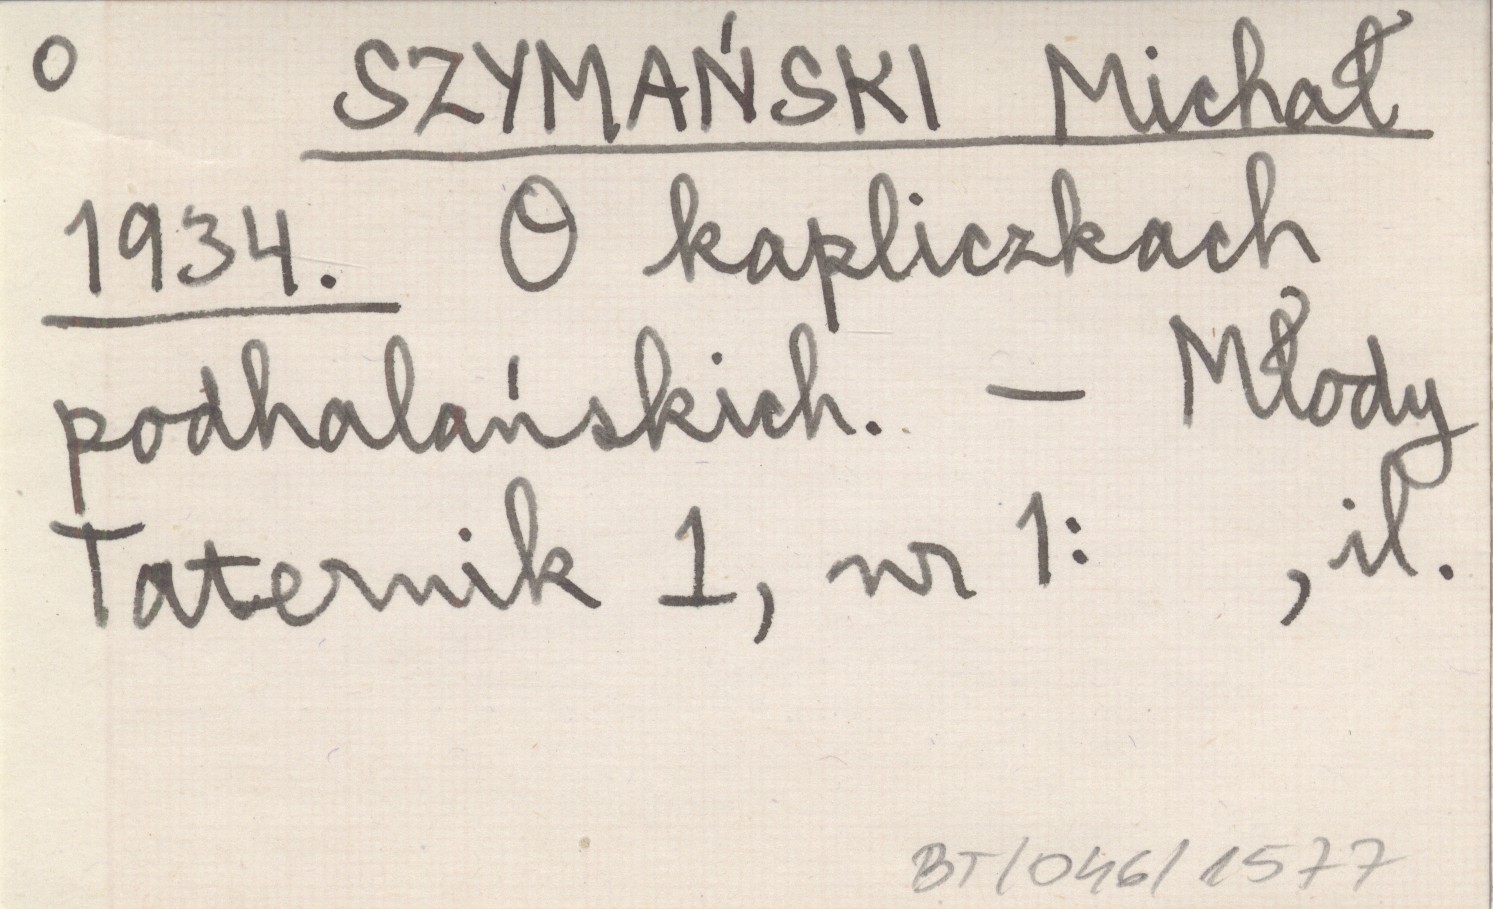 O SZYMAŃSKI Michał
1934. O kapliczkach
podhalańskich. — Młody
Taternik 1, nr 1: , il.
BT/046/1577